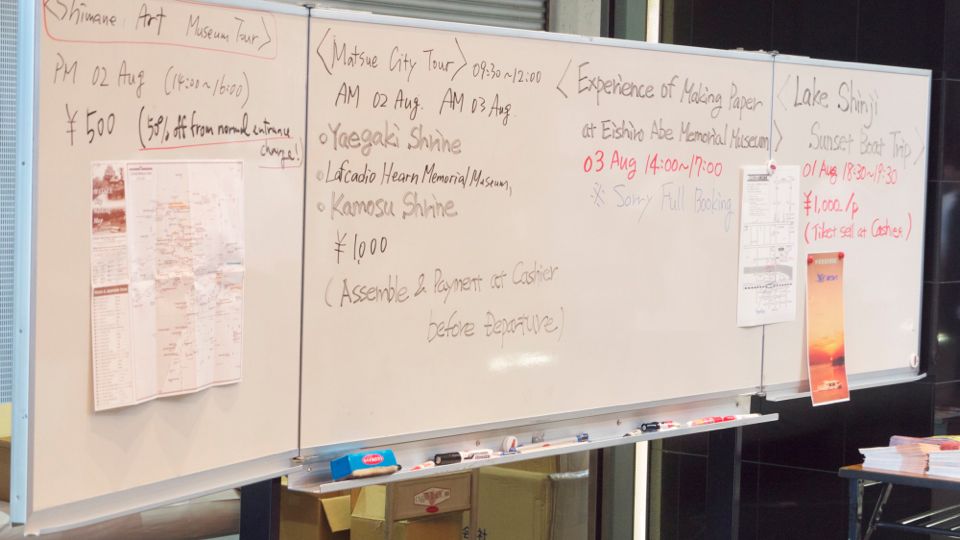 <Shimane Art Museum Tour>
PM 02 Aug (14:00~16:00)
¥500 (50% off from normal entrance charge!)
<Matsue City Tour> 09:30~12:00
AM 02 Aug. AM 03 Aug.
○Yaegaki Shrine
○Lafcadio Hearn Memorial Museum,
○Kamosu Shrine
¥1,000
(Assemble & Payment at Cashier
before Departure)
<Experience of Making Paper
at Eishiro Abe Memorial Museum>
03 Aug 14:00~17:00
※ Sorry Full Booking
<Lake Shinji
Sunset Boat Trip>
01 Aug 18:30~19:30
¥1,000/p
(Tiket sell at Cashier)